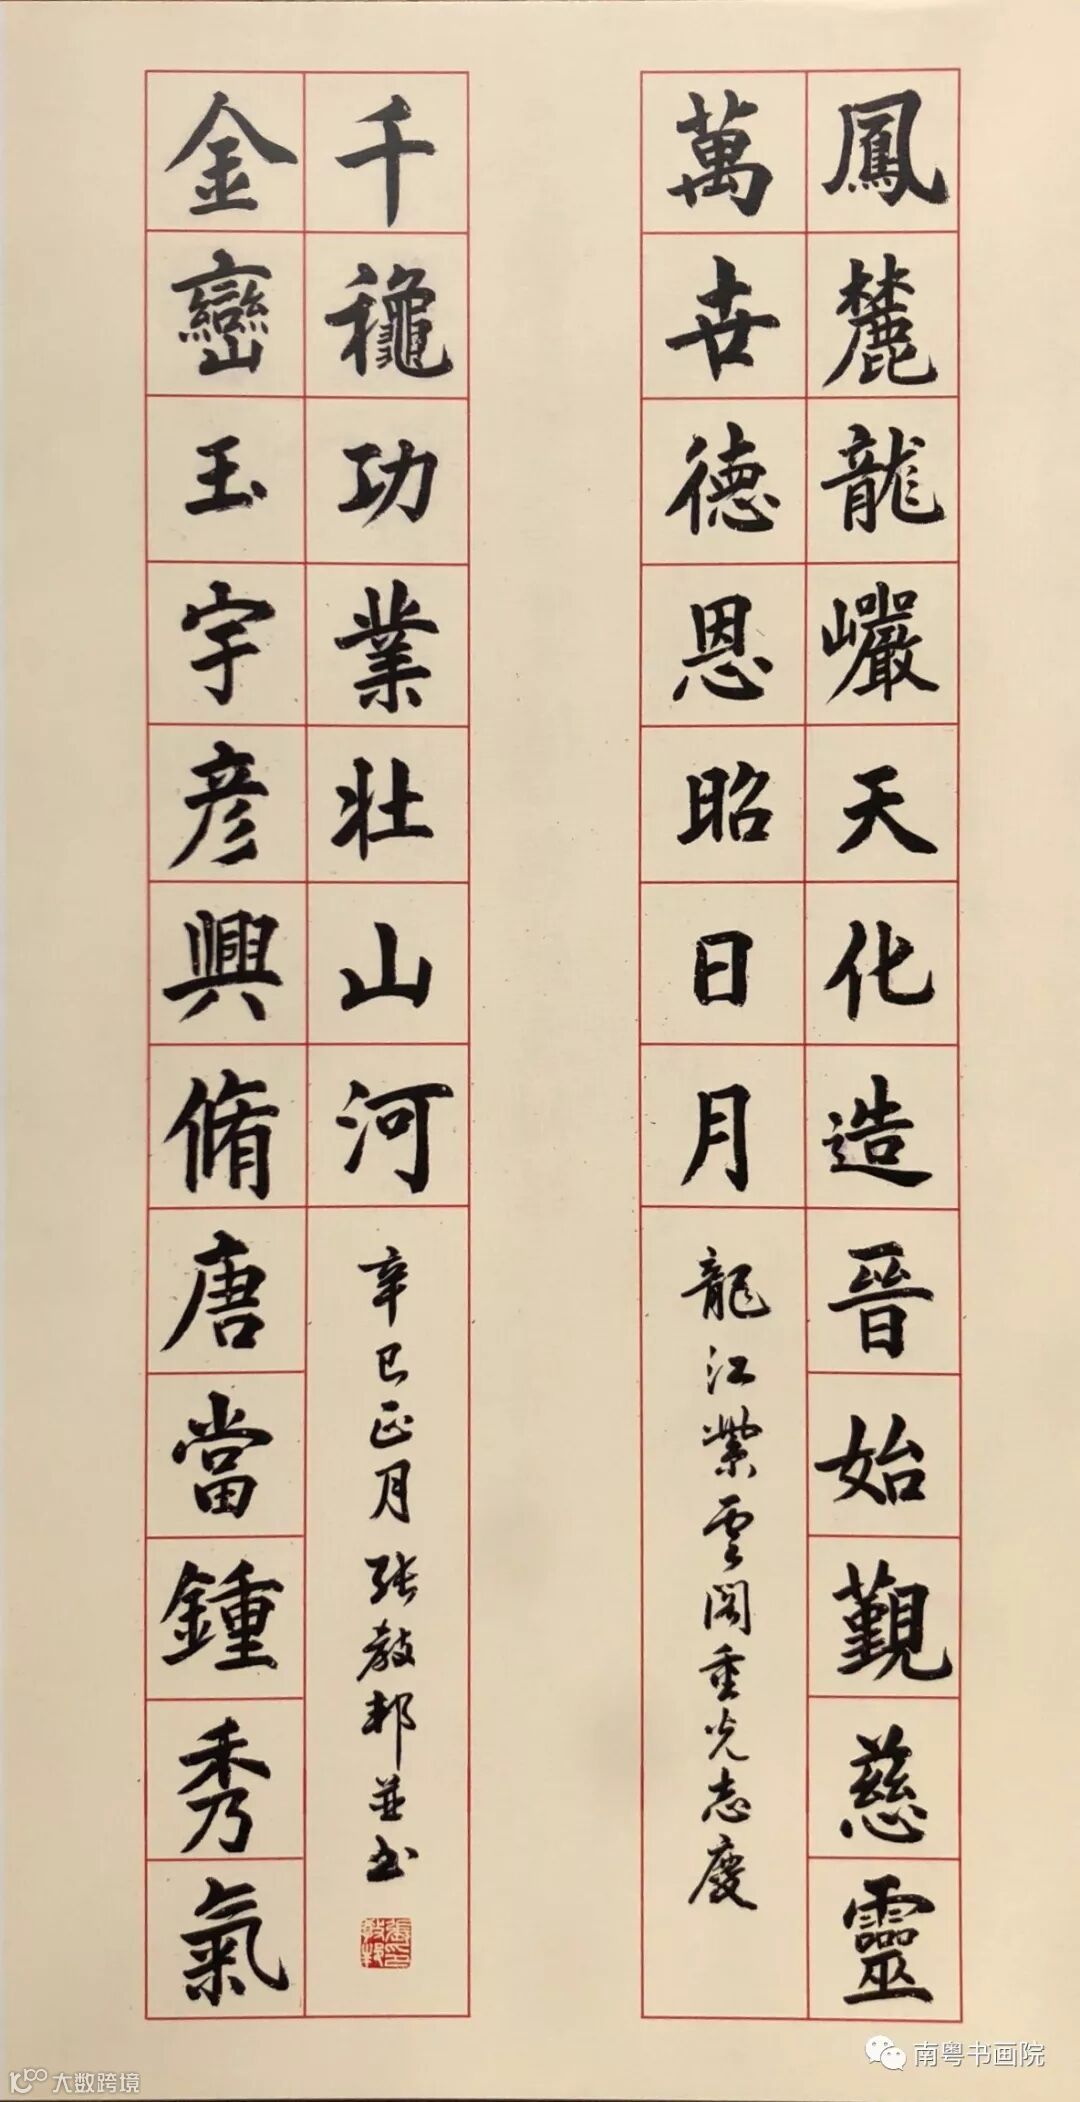 鳳麓龍巖天化造晉始覲慈靈
萬世德恩昭日月
龍江紫雲閣重光志慶
金巒玉宇彥興脩唐當鍾秀氣
千龝功業壯山河
辛巳正月張教邦並書
南粤书画院
大数跨境